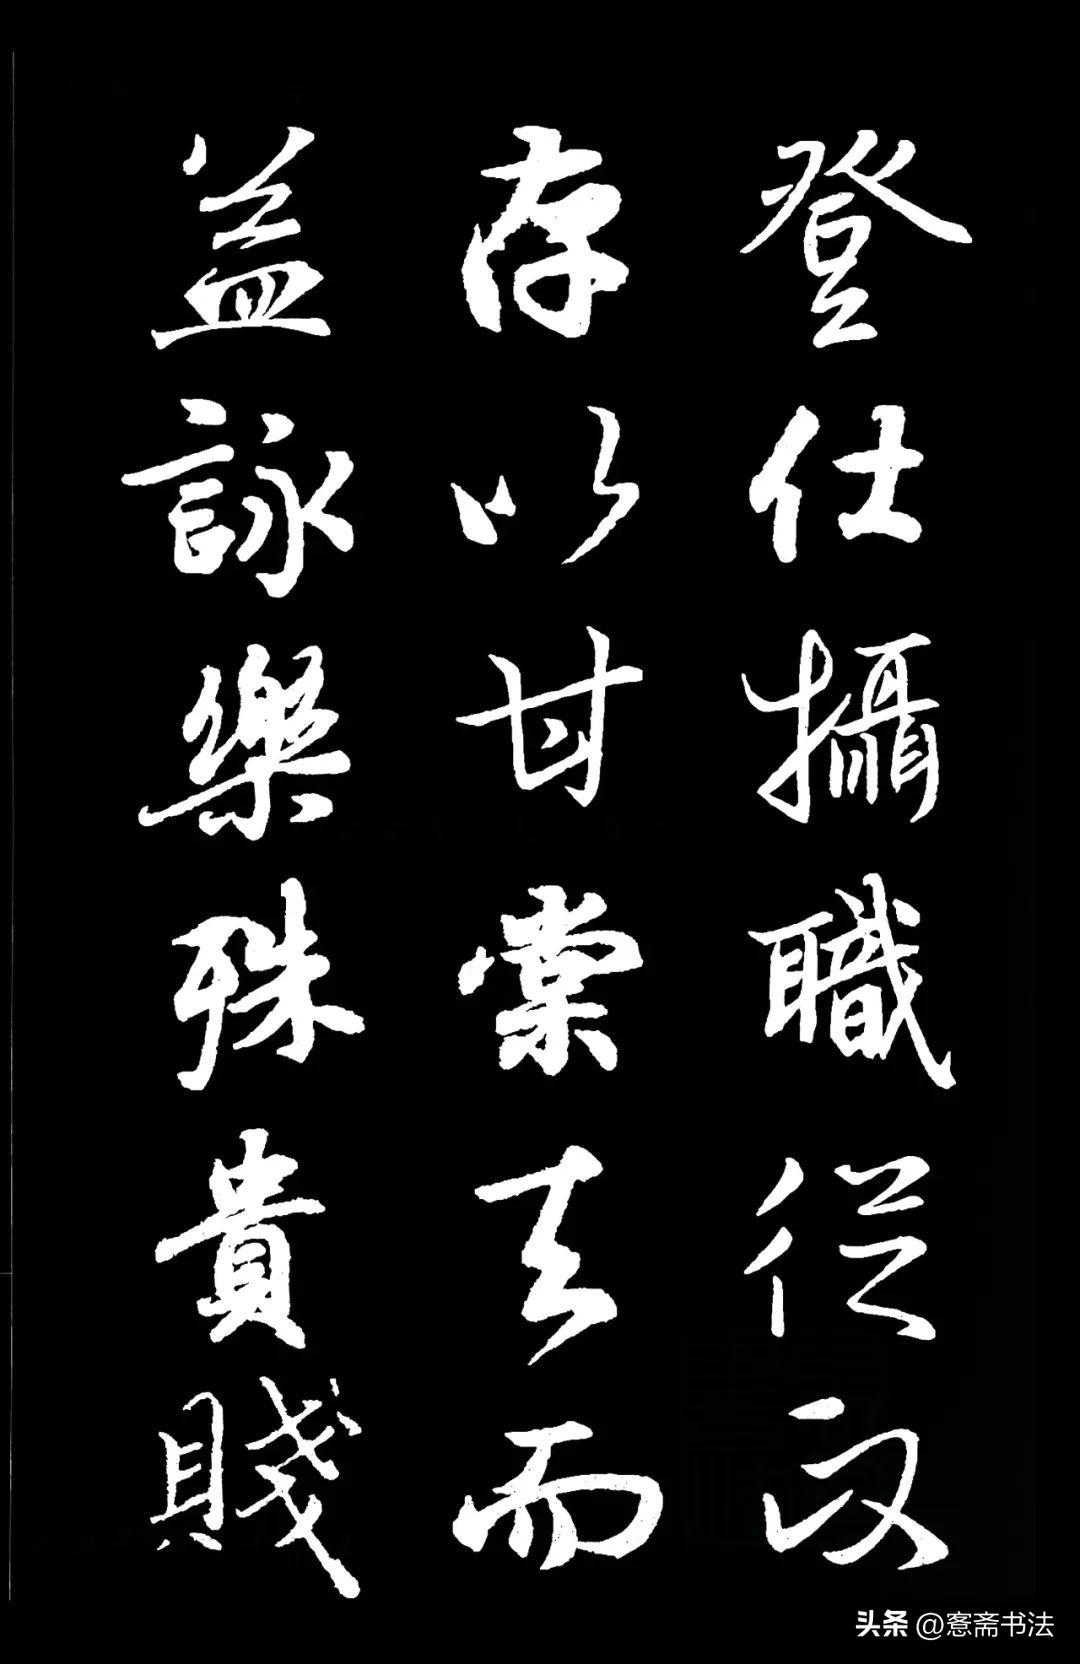 登仕攝職從政
存以甘棠去而
益詠樂殊貴賤
头条 @愙斋书法